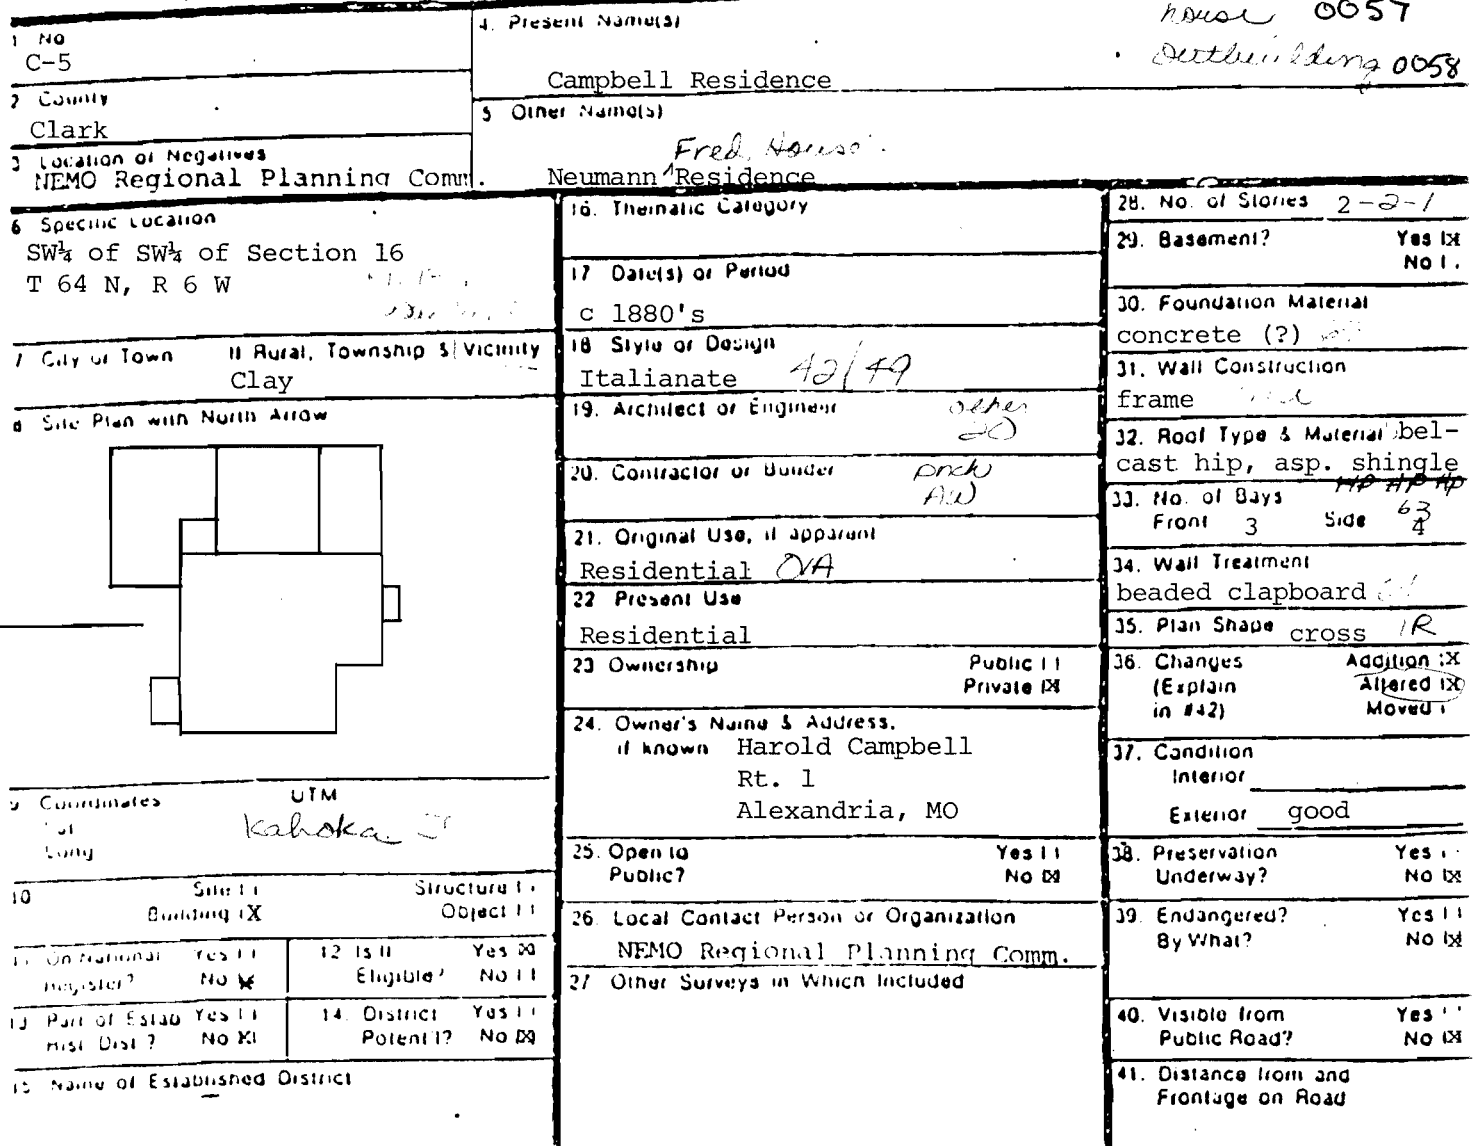 house 0057
Outbuilding 0058
1 No
C-5
2 County
Clark
3 Location of Negatives
NEMO Regional Planning Comm.
4. Present Name(s)
Campbell Residence
5 Other Name(s)
Fred, House
Neumann ^ Residence
6 Specific Location
SW¼ of SW¼ of Section 16
T 64 N, R 6 W
7 City or Town If Rural, Township & Vicinity
Clay
8 Site Plan with North Arrow
9 Coordinates UTM
Lat
Long
Kahoka
10 Site [ ] Structure [ ]
Building [X Object [ ]
11 On National Register? Yes [ ] No [X]
12 Is It Eligible? Yes [X] No [ ]
13 Part of Estab Hist. Dist.? Yes [ ] No [X]
14. District Potent'l? Yes [ ] No [X]
15 Name of Established District
16. Thematic Category
17 Date(s) or Period
c 1880's
18 Style or Design
Italianate 42/49
19. Architect or Engineer
other
20
20. Contractor or Builder
pnck
AW
21. Original Use, if apparent
Residential 01A
22 Present Use
Residential
23 Ownership Public [ ]
Private [X]
24. Owner's Name & Address,
if known Harold Campbell
Rt. 1
Alexandria, MO
25. Open to Yes [ ]
Public? No [X]
26. Local Contact Person or Organization
NEMO Regional Planning Comm.
27 Other Surveys in Which Included
28. No. of Stories 2-2-1
29. Basement? Yes [X]
No [ ]
30. Foundation Material
concrete (?)
31. Wall Construction
frame
32. Roof Type & Material bel-
cast hip, asp. shingle
HP HP HP
33. No. of Bays
Front 3 Side 63
4
34. Wall Treatment
beaded clapboard
35. Plan Shape cross IR
36. Changes Addition [X
(Explain Altered [X
in #42) Moved [
37. Condition
Interior
Exterior good
38. Preservation Yes [ ]
Underway? No [X]
39. Endangered? Yes [ ]
By What? No [X]
40. Visible from Yes [ ]
Public Road? No [X]
41. Distance from and
Frontage on Road